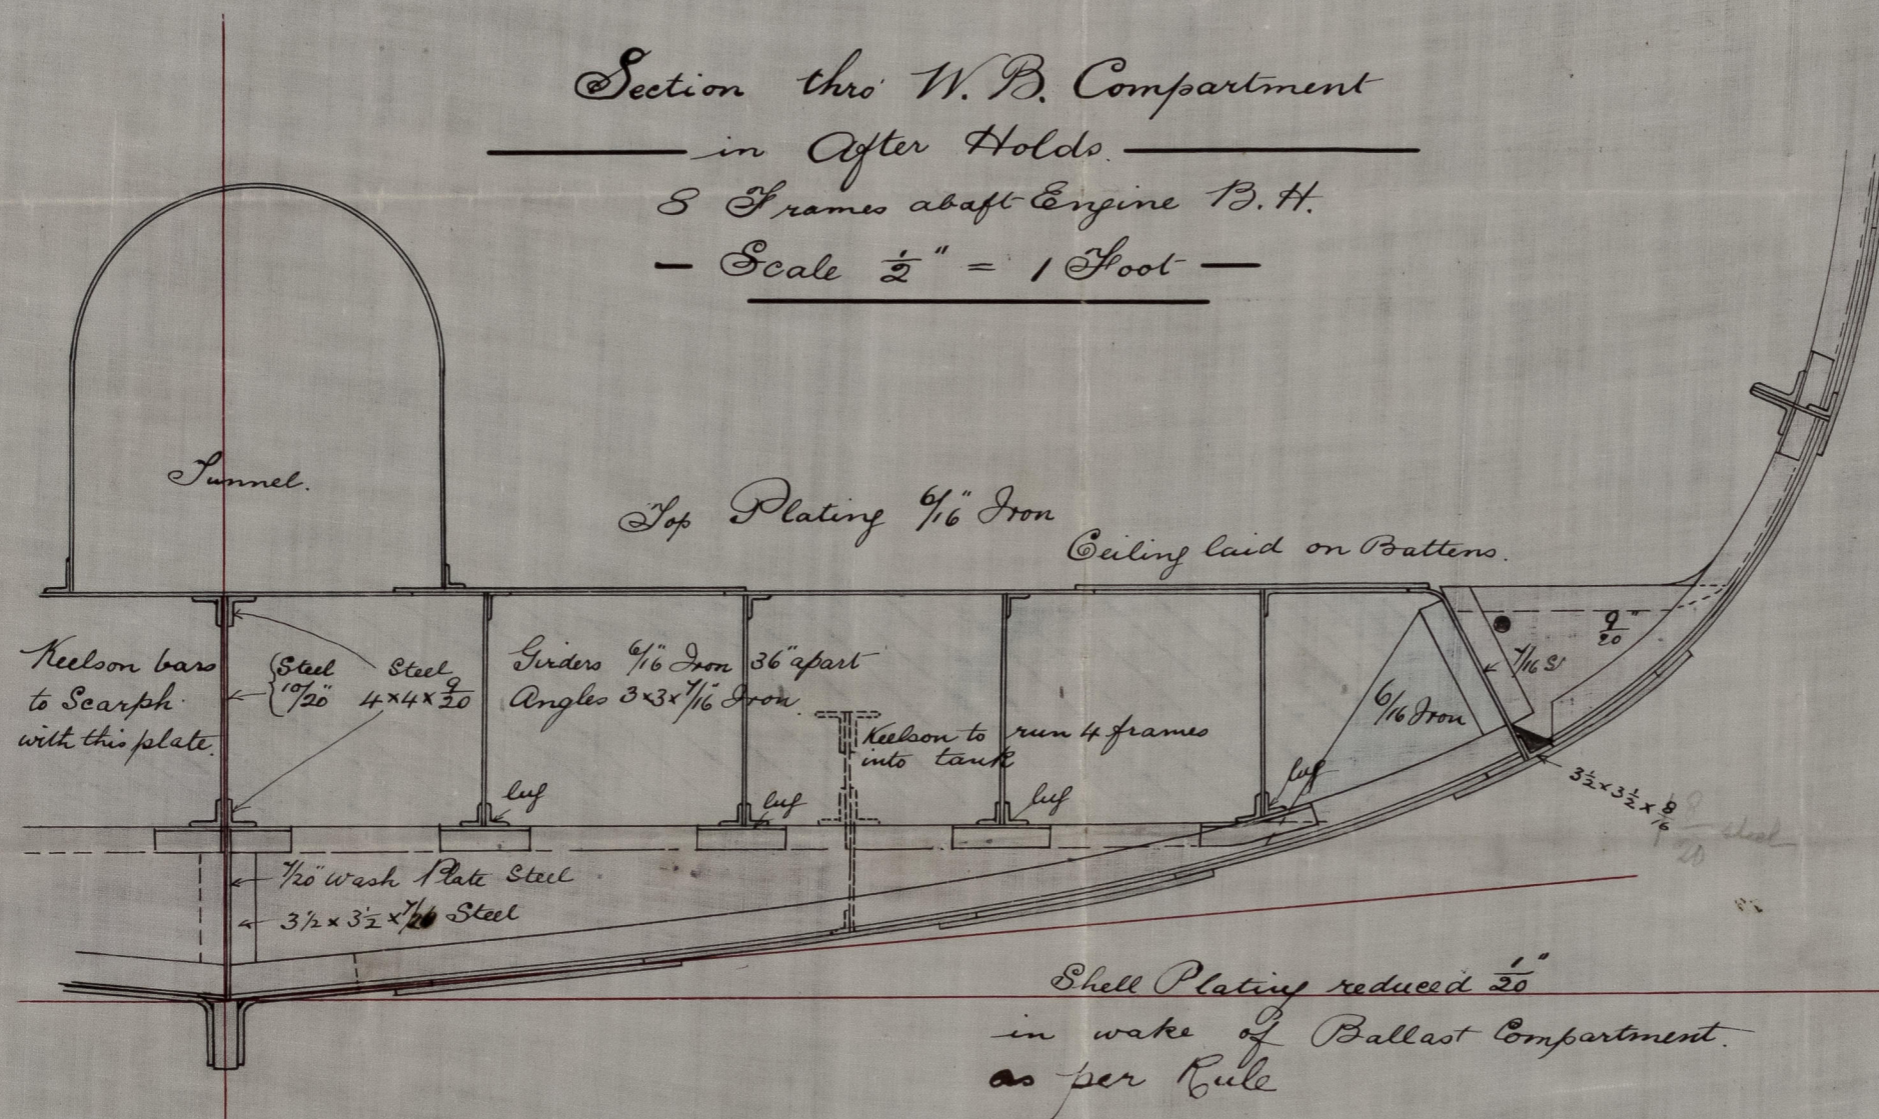 Section thro' W. B. Compartment
in After Holds.
8 Frames abaft Engine B. H.
Scale 1/2" = 1 Foot
Tunnel.
Top Plating 6/16" Iron
Ceiling laid on Battens.
Keelson bars
to Scarph
with this plate.
Steel
10/20"
Steel
4 x 4 x 9/20
Girders 6/16" Iron 36" apart
Angles 3 x 3 x 7/16 Iron.
Keelson to run 4 frames
into tank
9/20"
7/16 S'
6/16 Iron
lug
lug
lug
lug
3 1/2 x 3 1/2 x 8/16
8/20 steel
7/20" Wash Plate Steel
3 1/2 x 3 1/2 x 7/20 Steel
Shell Plating reduced 1/20"
in wake of Ballast Compartment.
as per Rule